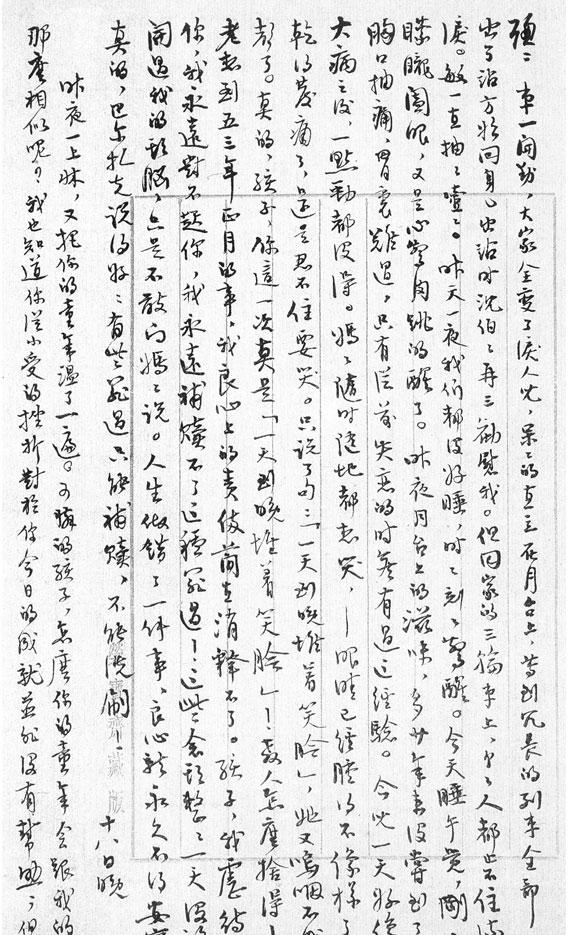 聰：車一開動，大家全變了淚人兒，呆呆的直立在月台上，等到冗長的列車全部
出了站方始回身。出站時沈伯伯再三勸慰我。但回家的三輪車上，個個人都止不住流
淚。敏一直抽抽噎噎。昨天一夜我們都沒好睡，時時刻刻驚醒。今天睡午覺，剛
朦朧闔眼，又是心驚肉跳的醒了。昨夜月台上的滋味，多少年來沒嘗到了
胸口抽痛，胃裏難過，只有從前失戀的時候有過這經驗。今兒一天好像
大病之後，一點勁都沒得。媽媽隨時隨地都想哭，——眼睛已經腫得不像樣了
乾得發痛了，還是忍不住要哭。只說了句：「一天到晚堆着笑臉」，她又嗚咽不成
聲了。真的，孩子，你這一次真是「一天到晚堆着笑臉」！教人怎麼捨得！
老想到五三年正月的事，我良心上的責備簡直消釋不了。孩子，我虐待
你，我永遠對不起你，我永遠補贖不了這種罪過！這些念頭整整一天沒離
開過我的頭腦，只是不敢向媽媽說。人生做錯了一件事，良心就永久不得安寧
真的，巴尔扎克說得好：有些罪過只能補贖，不能洗刷！
十八日晚
昨夜一上牀，又把你的童年溫了一遍。可憐的孩子，怎麼你的童年會跟我的
那麼相似呢？我也知道你從小受的挫折對於你今日的成就並非沒有幫助；但